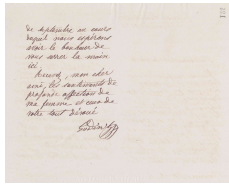 de septembre au cours
duquel nous espérons
avoir le bonheur de
vous serrer la main
ici.
Recevez, mon cher
ami, les sentiments de
profonde affection de
ma femme et ceux de
votre tout dévoué